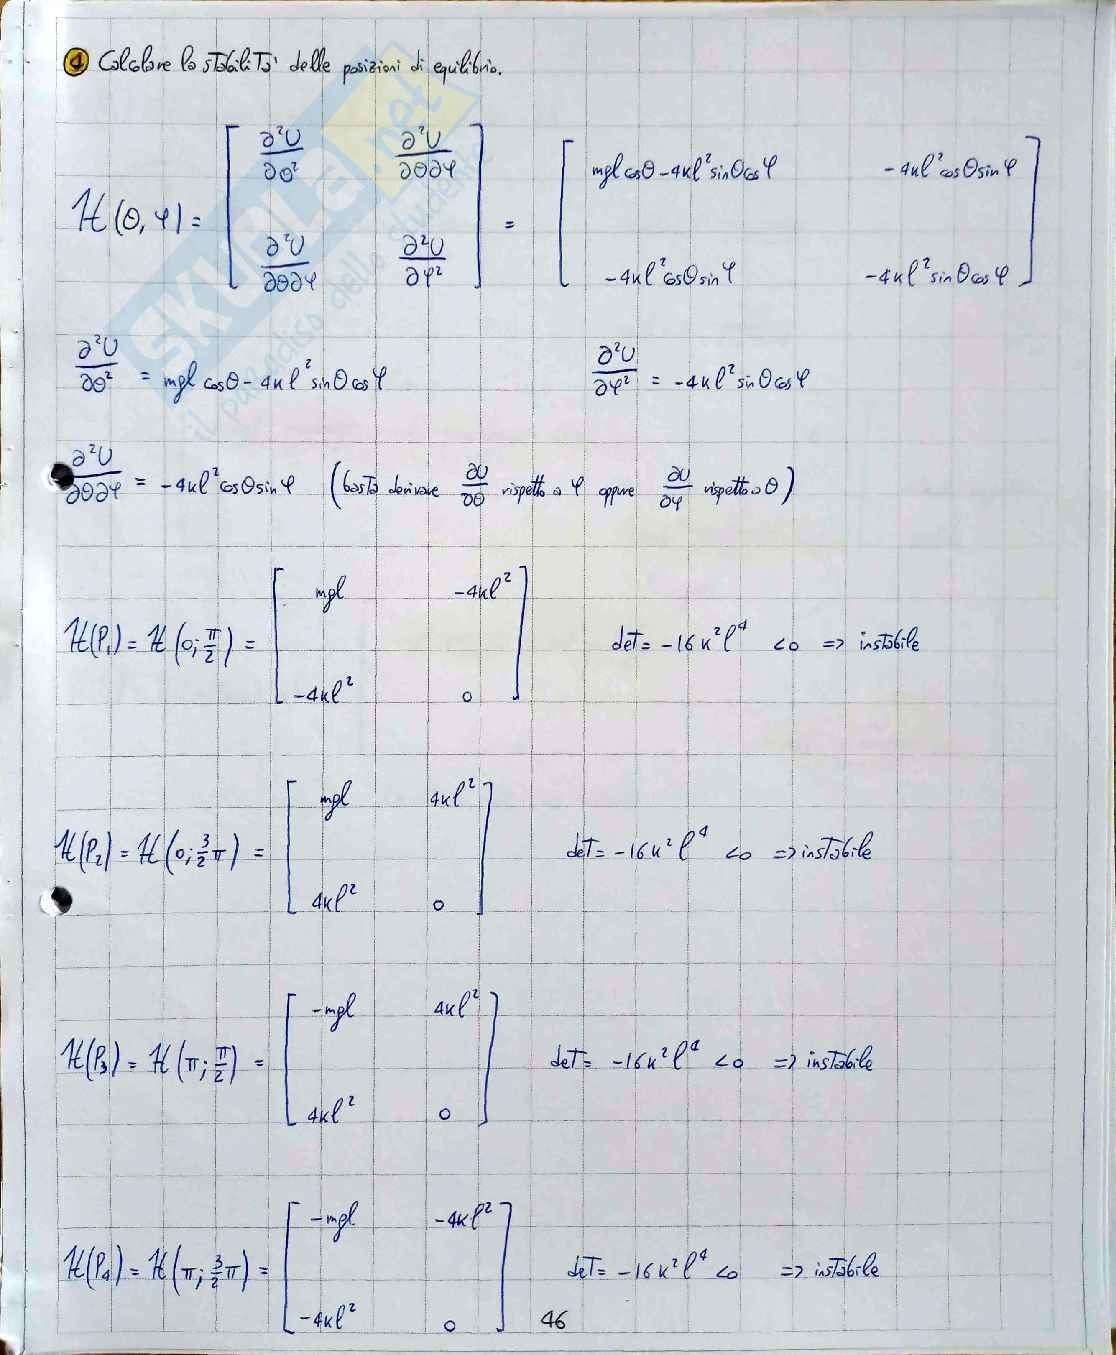 4 Calcolare la stabilità delle posizioni di equilibrio.
H(θ, φ) = [ ∂²U/∂θ² ∂²U/∂θ∂φ ; ∂²U/∂θ∂φ ∂²U/∂φ² ] = [ mgl cosθ - 4kl² sinθ cosφ - 4kl² cosθ sinφ ; - 4kl² cosθ sinφ - 4kl² sinθ cosφ ]
∂²U/∂θ² = mgl cosθ - 4kl² sinθ cosφ ∂²U/∂φ² = - 4kl² sinθ cosφ
∂²U/∂θ∂φ = - 4kl² cosθ sinφ (basta derivare ∂U/∂θ rispetto a φ oppure ∂U/∂φ rispetto a θ)
H(P₁) = H(0; π/2) = [ mgl -4kl² ; -4kl² 0 ] det = -16k²l⁴ <0 => instabile
H(P₂) = H(0; 3/2 π) = [ mgl 4kl² ; 4kl² 0 ] det = -16k²l⁴ <0 => instabile
H(P₃) = H(π; π/2) = [ -mgl 4kl² ; 4kl² 0 ] det = -16k²l⁴ <0 => instabile
H(P₄) = H(π; 3/2 π) = [ -mgl -4kl² ; -4kl² 0 ] det = -16k²l⁴ <0 => instabile
46
SKUOLA.net
il paradiso dello studente